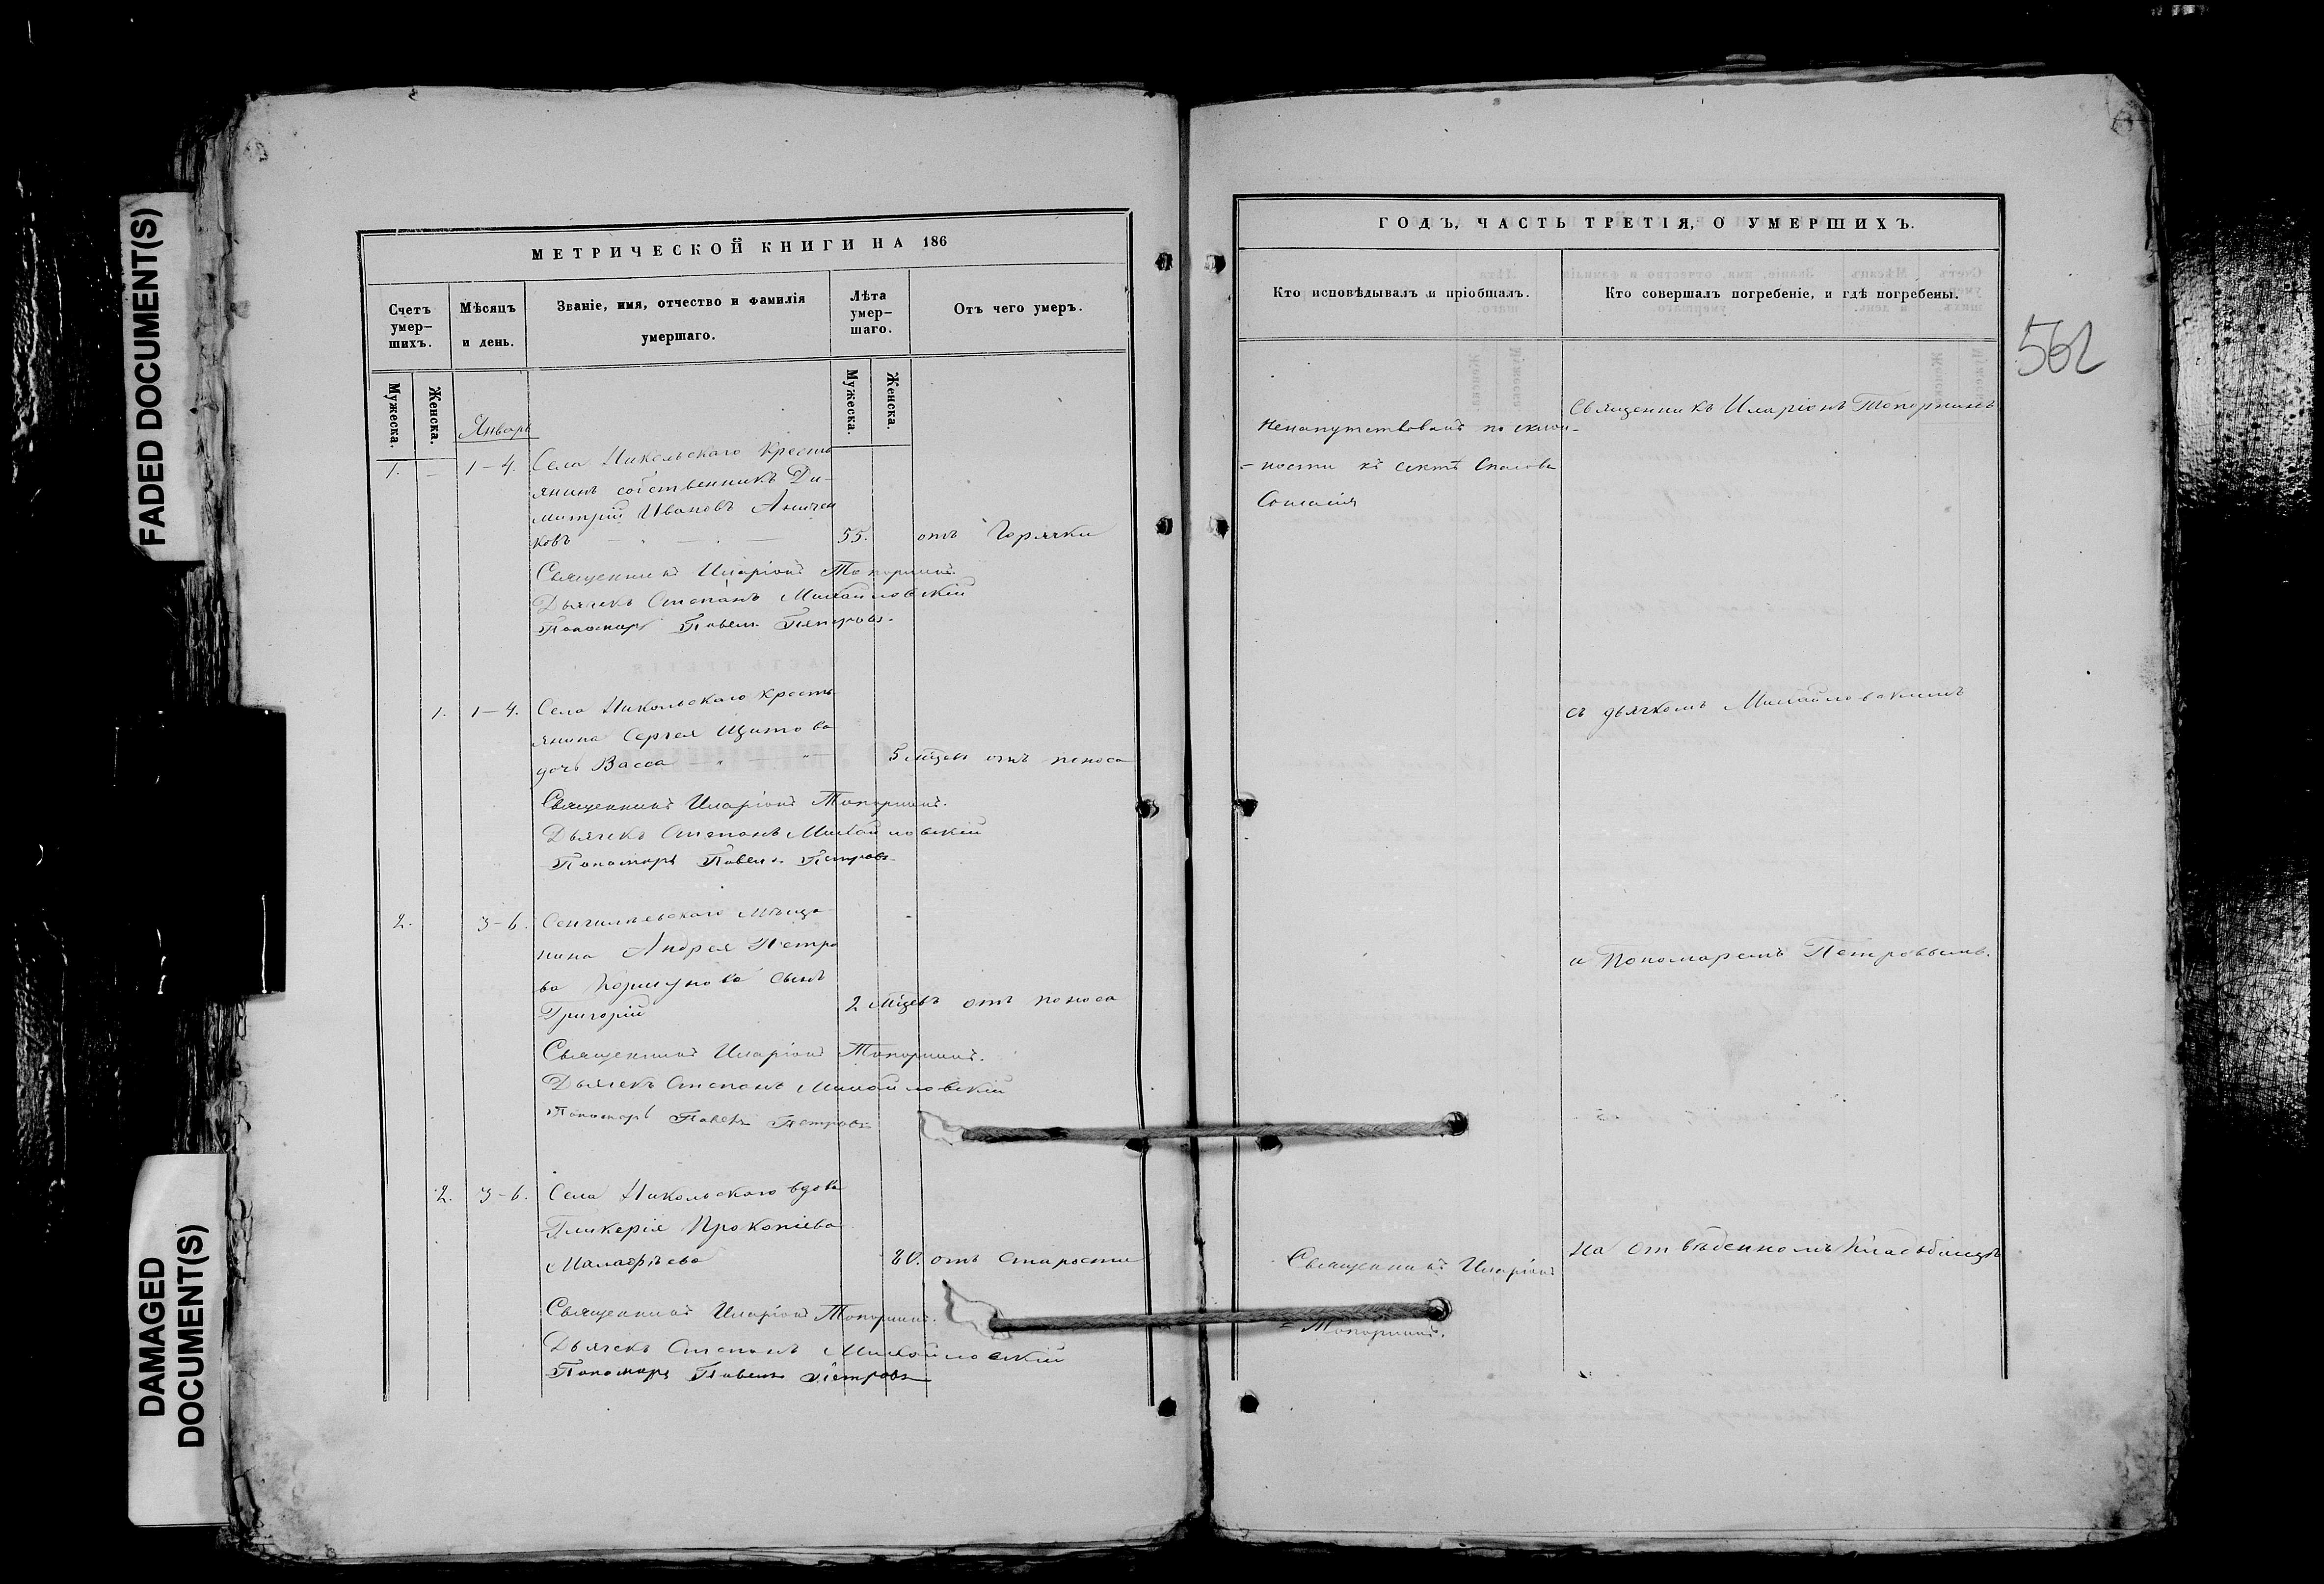 FADED DOCUMENT(S)
DAMAGED
DOCUMENT(S)
МЕТРИЧЕСКОЙ КНИГИ НА 186
Счетъ
умер-
шихъ.
Мѣсяцъ
и день.
Званіе, имя, отчество и фамилія
умершаго.
Лѣта
умер-
шаго.
Отъ чего умеръ.
Мужеска.
Женска.
Мужеска.
Женска.
Январь
1. – 1–4. Села Никольскаго кресть
янинъ собственникъ Ди-
митрій Ивановъ Аничен
ковъ 55. отъ Горячки
Священникъ Иларіонъ Топорнинъ.
Дьячекъ Степанъ Михайловскій
Пономарь Павелъ Петровъ.
1. 1–4. Села Никольскаго кресть
янина Сергея Щитова
дочь Васса 5 мцевъ отъ поноса
Священникъ Иларіонъ Топорнинъ.
Дьячекъ Степанъ Михайловскій
Пономарь Павелъ Петровъ
2. 3–6. Сенгилеевскаго мѣща
нина Андрея Петро
ва Коршунова сынъ
Григорій 2 мцевъ отъ поноса
Священникъ Иларіонъ Топорнинъ.
Дьячекъ Степанъ Михайловскій
Пономарь Павелъ Петровъ
2. 3–6. Села Никольскаго вдова
Гликерія Прокопіева
Малафѣева 80. отъ старости
Священникъ Иларіонъ Топорнинъ.
Дьячекъ Степанъ Михайловскій
Пономарь Павелъ Петровъ
ГОДЪ, ЧАСТЬ ТРЕТІЯ, О УМЕРШИХЪ.
Кто исповѣдывалъ и пріобщалъ.
Кто совершалъ погребеніе, и гдѣ погребены.
562
Ненапутствованъ по склон-
-ности къ сектѣ Спасова
Согласія
Священникъ Иларіонъ
= Топорнинъ.
Священникъ Иларіонъ Топорнинъ
съ дьячкомъ Михайловскимъ
и Пономаремъ Петровымъ.
На отвѣденномъ Кладбищѣ